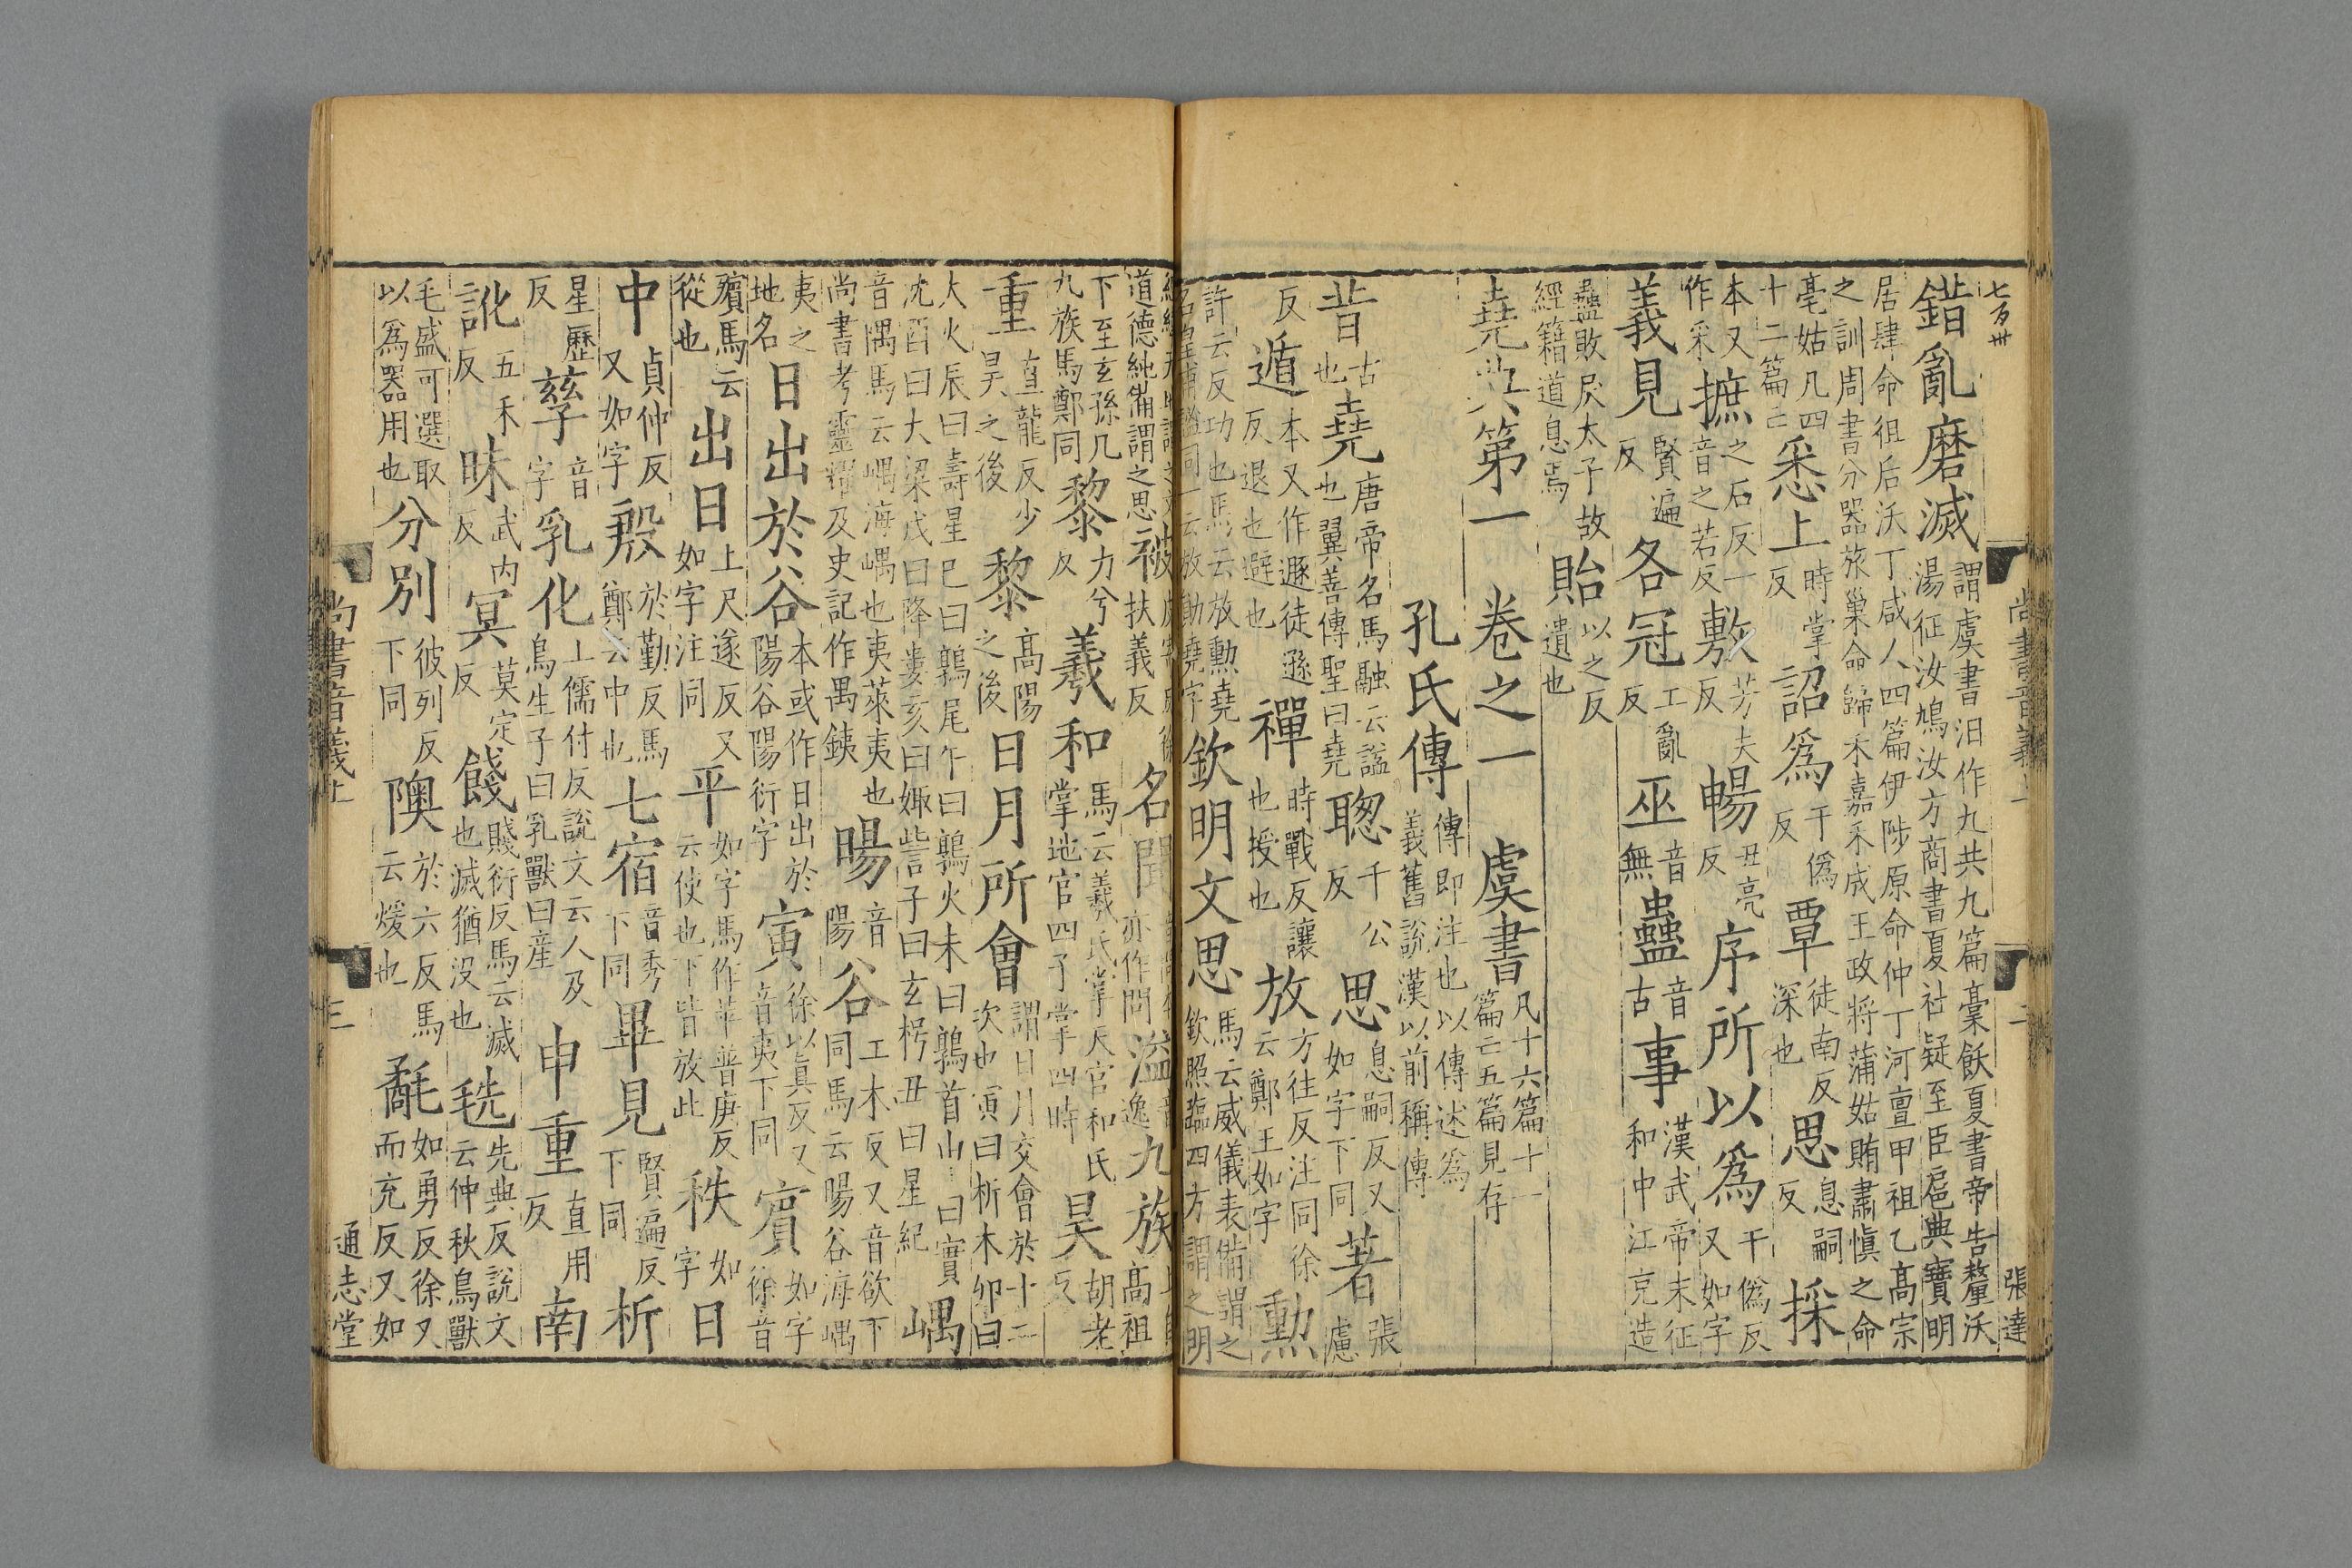 七百卅
錯亂磨滅 謂虞書汨作九共九篇槀飫夏書帝告釐沃
湯征汝鳩汝方商書夏社疑至臣扈典寶明
居肆命徂后沃丁咸人四篇伊陟原命仲丁河亶甲祖乙髙宗
之訓周書分器旅巢命歸禾嘉禾成王政將蒲姑賄肅愼之命
亳姑凡四
十二篇亡 悉上 時掌
反 詔爲 干僞
反 覃 徒南反
深也 思 息嗣
反 採
本又
作采 摭 之石反一
音之若反 敷 芳夫
反 暢 丑亮
反 序所以爲 干僞反
又如字
義見 賢遍
反 各冠 工亂
反 巫 音
無 蠱 音
古 事 漢武帝末征
和中江充造
蠱敗戾太子故
經籍道息焉 貽 以之反
遺也
堯典第一 卷之一 虞書 凡十六篇十一
篇亡五篇見存
孔氏傳 傳即注也以傳述爲
義舊說漢以前稱傳
昔 古
也 堯 唐帝名馬融云諡
也翼善傳聖曰堯 聰 千公
反 思 息嗣反又
如字下同 著 張
慮
反 遁 本又作遯徒遜
反退也避也 禪 時戰反讓
也授也 放 方往反注同徐
云鄭王如字 勳
許云反功也馬云放勳堯
名皇甫謐同一云放勳堯字 欽明文思 馬云威儀表備謂之
欽照臨四方謂之明
道德純備謂之思 被 扶義反 名聞 亦作問 溢 音
逸 九族 髙祖
下至玄孫凡
九族馬鄭同 黎 力兮
反 羲和 馬云羲氏掌天官和氏
掌地官四子掌四時 昊 胡老
反
重 直龍反少
昊之後 黎 髙陽
之後 日月所會 謂日月交會於十二
次也寅曰析木卯曰
大火辰曰壽星巳曰鶉尾午曰鶉火未曰鶉首申曰實
沈酉曰大梁戌曰降婁亥曰娵訾子曰玄枵丑曰星紀 嵎
音隅馬云嵎海嵎也夷萊夷也
尚書考靈耀及史記作禺銕 暘 音
陽 谷 工木反又音欲下
同馬云暘谷海嵎
夷之
地名 日出於谷 本或作日出於
陽谷陽衍字 寅 徐以真反又
音夷下同 賓 如字
徐音
殯馬云
從也 出日 上尺遂反又
如字注同 平 如字馬作苹普庚反
云使也下皆放此 秩 如
字 日
中 貞仲反
又如字 殷 於勤反馬
鄭云中也 七宿 音秀
下同 畢見 賢遍反
下同 析
星歷
反 孳 音
字 乳化 上儒付反說文云人及
鳥生子曰乳獸曰産 申重 直用
反 南
訛 五禾
反 昧 武内
反 冥 莫定
反 餞 賤衍反馬云滅
也滅猶没也 毨 先典反說文
云仲秋鳥獸
毛盛可選取
以爲器用也 分別 彼列反
下同 隩 於六反馬
云煖也 氄 如勇反徐又
而充反又如
尚書音義上
二
張達
尚書音義上
三
通志堂